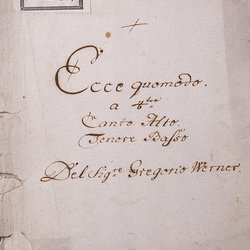 Ecce quomodo.
a 4tro
Canto Alto
Tenore Basso
Del Sigre Gregorio Werner.